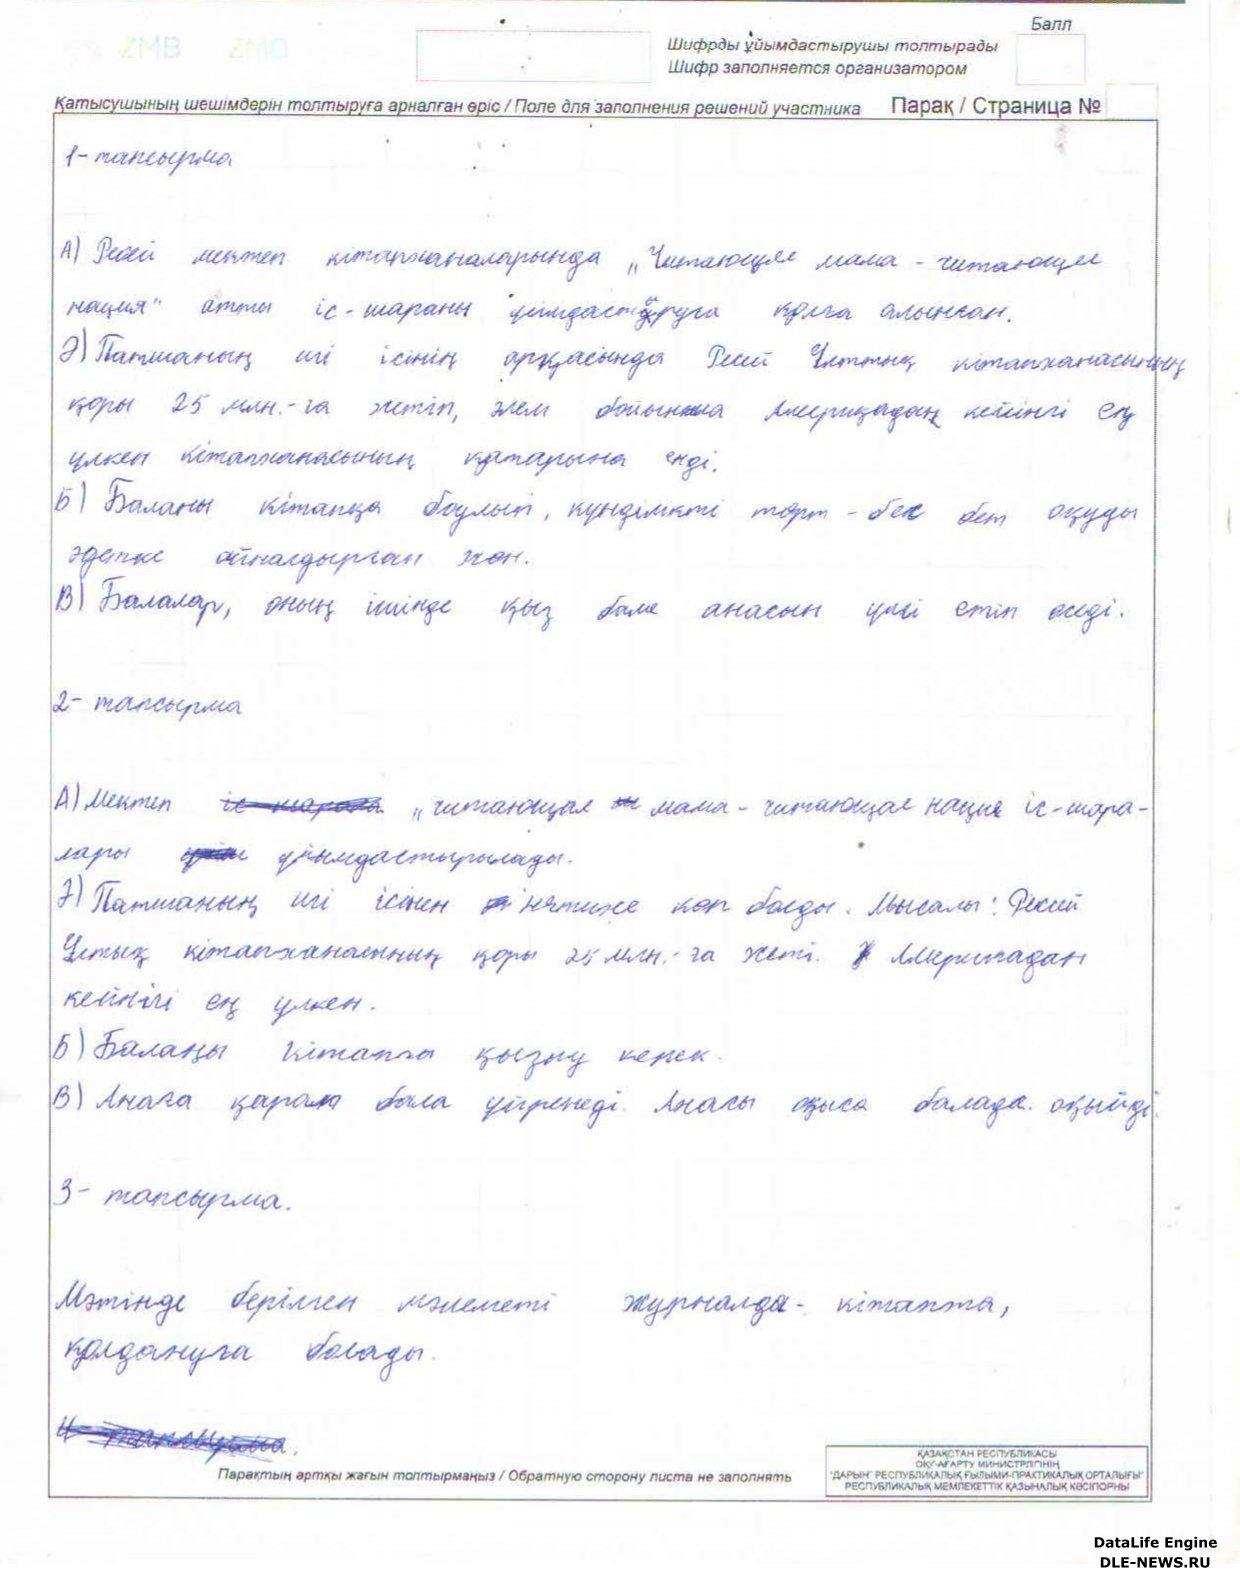 Балл
Шифрды ұйымдастырушы толтырады
Шифр заполняется организатором
Қатысушының шешімдерін толтыруға арналған өріс / Поле для заполнения решений участника Парақ / Страница №
1- тапсырма
А) Ресей мектеп кітапханаларында „Читающие мама - читающие
нация" атты іс-шараны ұйымдастыруға қолға алынған.
Ә) Патшаның игі ісінің арқасында Ресей Ұлттық кітапханасының
қоры 25 млн.-ға жетіп, әлем бойынша Америкадан кейінгі ең
үлкен кітапханасының қатарына енді.
Б) Баланы кітапқа баулып, күнделікті төрт - бес бет оқуды
әдетке айналдырған жөн.
В) Балалар, оның ішінде қыз бала анасын үлгі етіп өседі.
2- тапсырма
А) Мектеп „читающая мама - читающая нация іс-шара-
лары ұйымдастырылады.
Ә) Патшаның игі ісінен нәтиже көп болды. Мысалы: Ресей
Ұлтық кітапханасының қоры 25 млн.-ға жеті. Америкадан
кейінгі ең үлкен.
Б) Балаңы кітапқа қызығу керек.
В) Анаға қарап бала үйренеді. Анасы оқыса балада оқыйді.
3- тапсырма.
Мәтінде берілген мәлеметі журналда - кітапта,
қолдануға болады.
Парақтың артқы жағын толтырмаңыз / Обратную сторону листа не заполнять
ҚАЗАҚСТАН РЕСПУБЛИКАСЫ
ОҚУ-АҒАРТУ МИНИСТРЛІГІНІҢ
"ДАРЫН" РЕСПУБЛИКАЛЫҚ ҒЫЛЫМИ-ПРАКТИКАЛЫҚ ОРТАЛЫҒЫ"
РЕСПУБЛИКАЛЫҚ МЕМЛЕКЕТТІК ҚАЗЫНАЛЫҚ КӘСІПОРНЫ
DataLife Engine
DLE-NEWS.RU